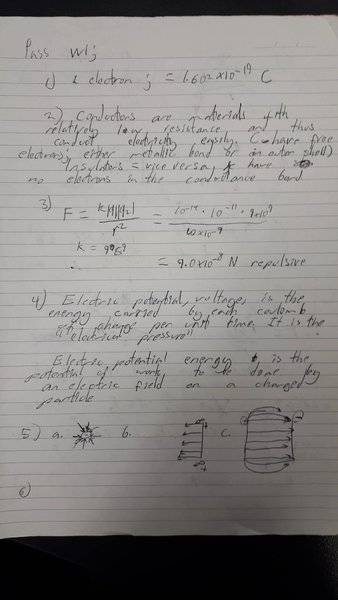 Pass W1;
1) 1 electron ; = 1.602 × 10⁻¹⁹ C
2) Conductors are materials with
relatively low resistance and thus
conduct electricity easily. C → have free
electrons, either metallic bond or in outer shell)
Insulators = vice versa, & have
no electrons in the conductance band
3)
F = k|q1||q2| / r² =
k = 9e9
= 9.0×10⁻⁸ N repulsive
4) Electric potential, voltage, is the
energy carried by each coulomb
of charge per unit time. It is the
"electrical pressure"
Electric potential energy is the
potential of work to be done by
an electric field on a charged
particle
5) a. b. c.
6)